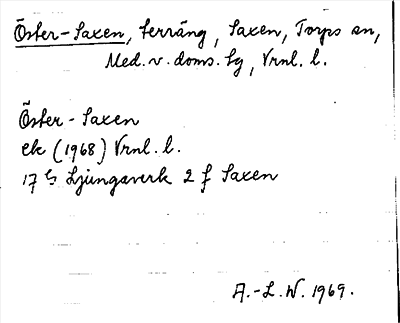 Öster-Saxen, terräng, Saxen, Torps sn,
Med. v. doms. lg, Vrnl. l.
Öster-Saxen
ek (1968) Vrnl. l.
17 G Ljungaverk 2 f Saxen
A.-L. W. 1969.